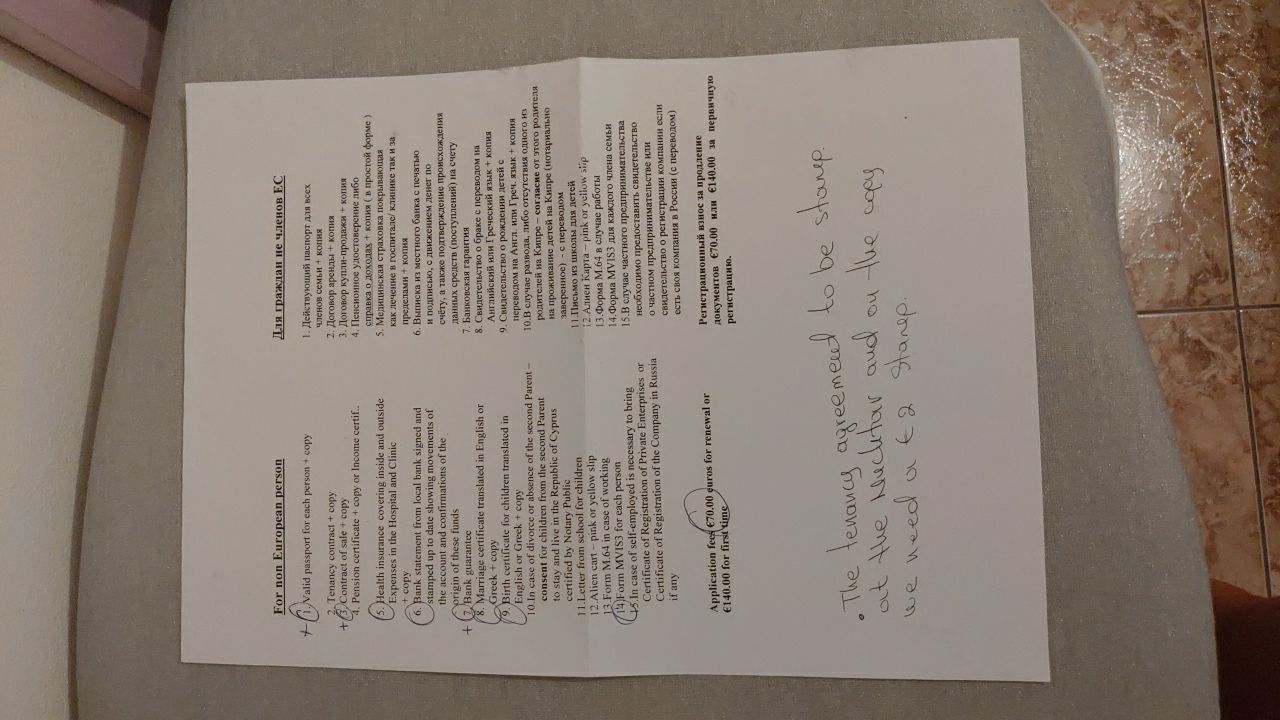 For non European person
1. Valid passport for each person + copy
2. Tenancy contract + copy
3. Contract of sale + copy
4. Pension certificate + copy or Income certif..
5. Health insurance covering inside and outside
Expenses in the Hospital and Clinic
+ copy
6. Bank statement from local bank signed and
stamped up to date showing movements of
the account and confirmations of the
origin of these funds
7. Bank guarantee
8. Marriage certificate translated in English or
Greek + copy
9. Birth certificate for children translated in
English or Greek + copy
10. In case of divorce or absence of the second Parent –
consent for children from the second Parent
to stay and live in the Republic of Cyprus
certified by Notary Public
11. Letter from school for children
12. Alien cart – pink or yellow slip
13. Form M.64 in case of working
14. Form MVIS3 for each person
15. In case of self-employed is necessary to bring
Certificate of Registration of Private Enterprises or
Certificate of Registration of the Company in Russia
if any
Application fees €70.00 euros for renewal or
€140.00 for first time
Для граждан не членов ЕС
1. Действующий паспорт для всех
членов семьи + копия
2. Договор аренды + копия
3. Договор купли-продажи + копия
4. Пенсионное удостоверение либо
справка о доходах + копия ( в простой форме )
5. Медицинская страховка покрывающая
как лечение в госпитале/ клинике так и за
пределами + копия
6. Выписка из местного банка с печатью
и подписью, с движением денег по
счёту, а также подтверждение происхождения
данных средств (поступлений) на счету
7. Банковская гарантия
8. Свидетельство о браке с переводом на
Английский или Греческий язык + копия
9. Свидетельство о рождении детей с
переводом на Англ. или Греч. язык + копия
10. В случае развода, либо отсутствия одного из
родителей на Кипре – согласие от этого родителя
на проживание детей на Кипре (нотариально
заверенное) - с переводом
11. Письмо из школы для детей
12. Алиен Карта – pink or yellow slip
13. Форма M.64 в случае работы
14. Форма MVIS3 для каждого члена семьи
15. В случае частного предпринимательства
необходимо предоставить свидетельство
о частном предпринимательстве или
свидетельство о регистрации компании если
есть своя компания в России (с переводом)
Регистрационный взнос за продление
документов €70.00 или €140.00 за первичную
регистрацию.
• The tenancy agreement to be stamp.
at the Muchtar and on the copy
we need a €2 stamp.